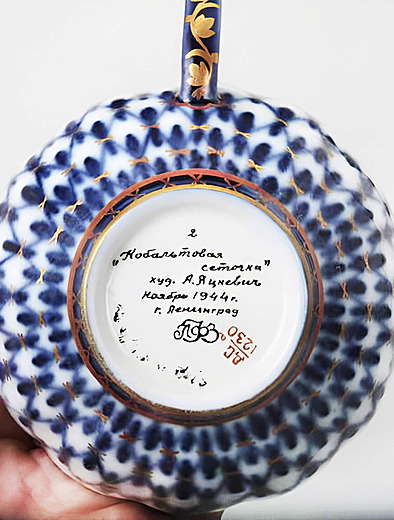 2
"Кобальтовая
сеточка"
худ. А. Яцкевич
Ноябрь 1944 г.
г. Ленинград
ЛФЗ
ДС
1230